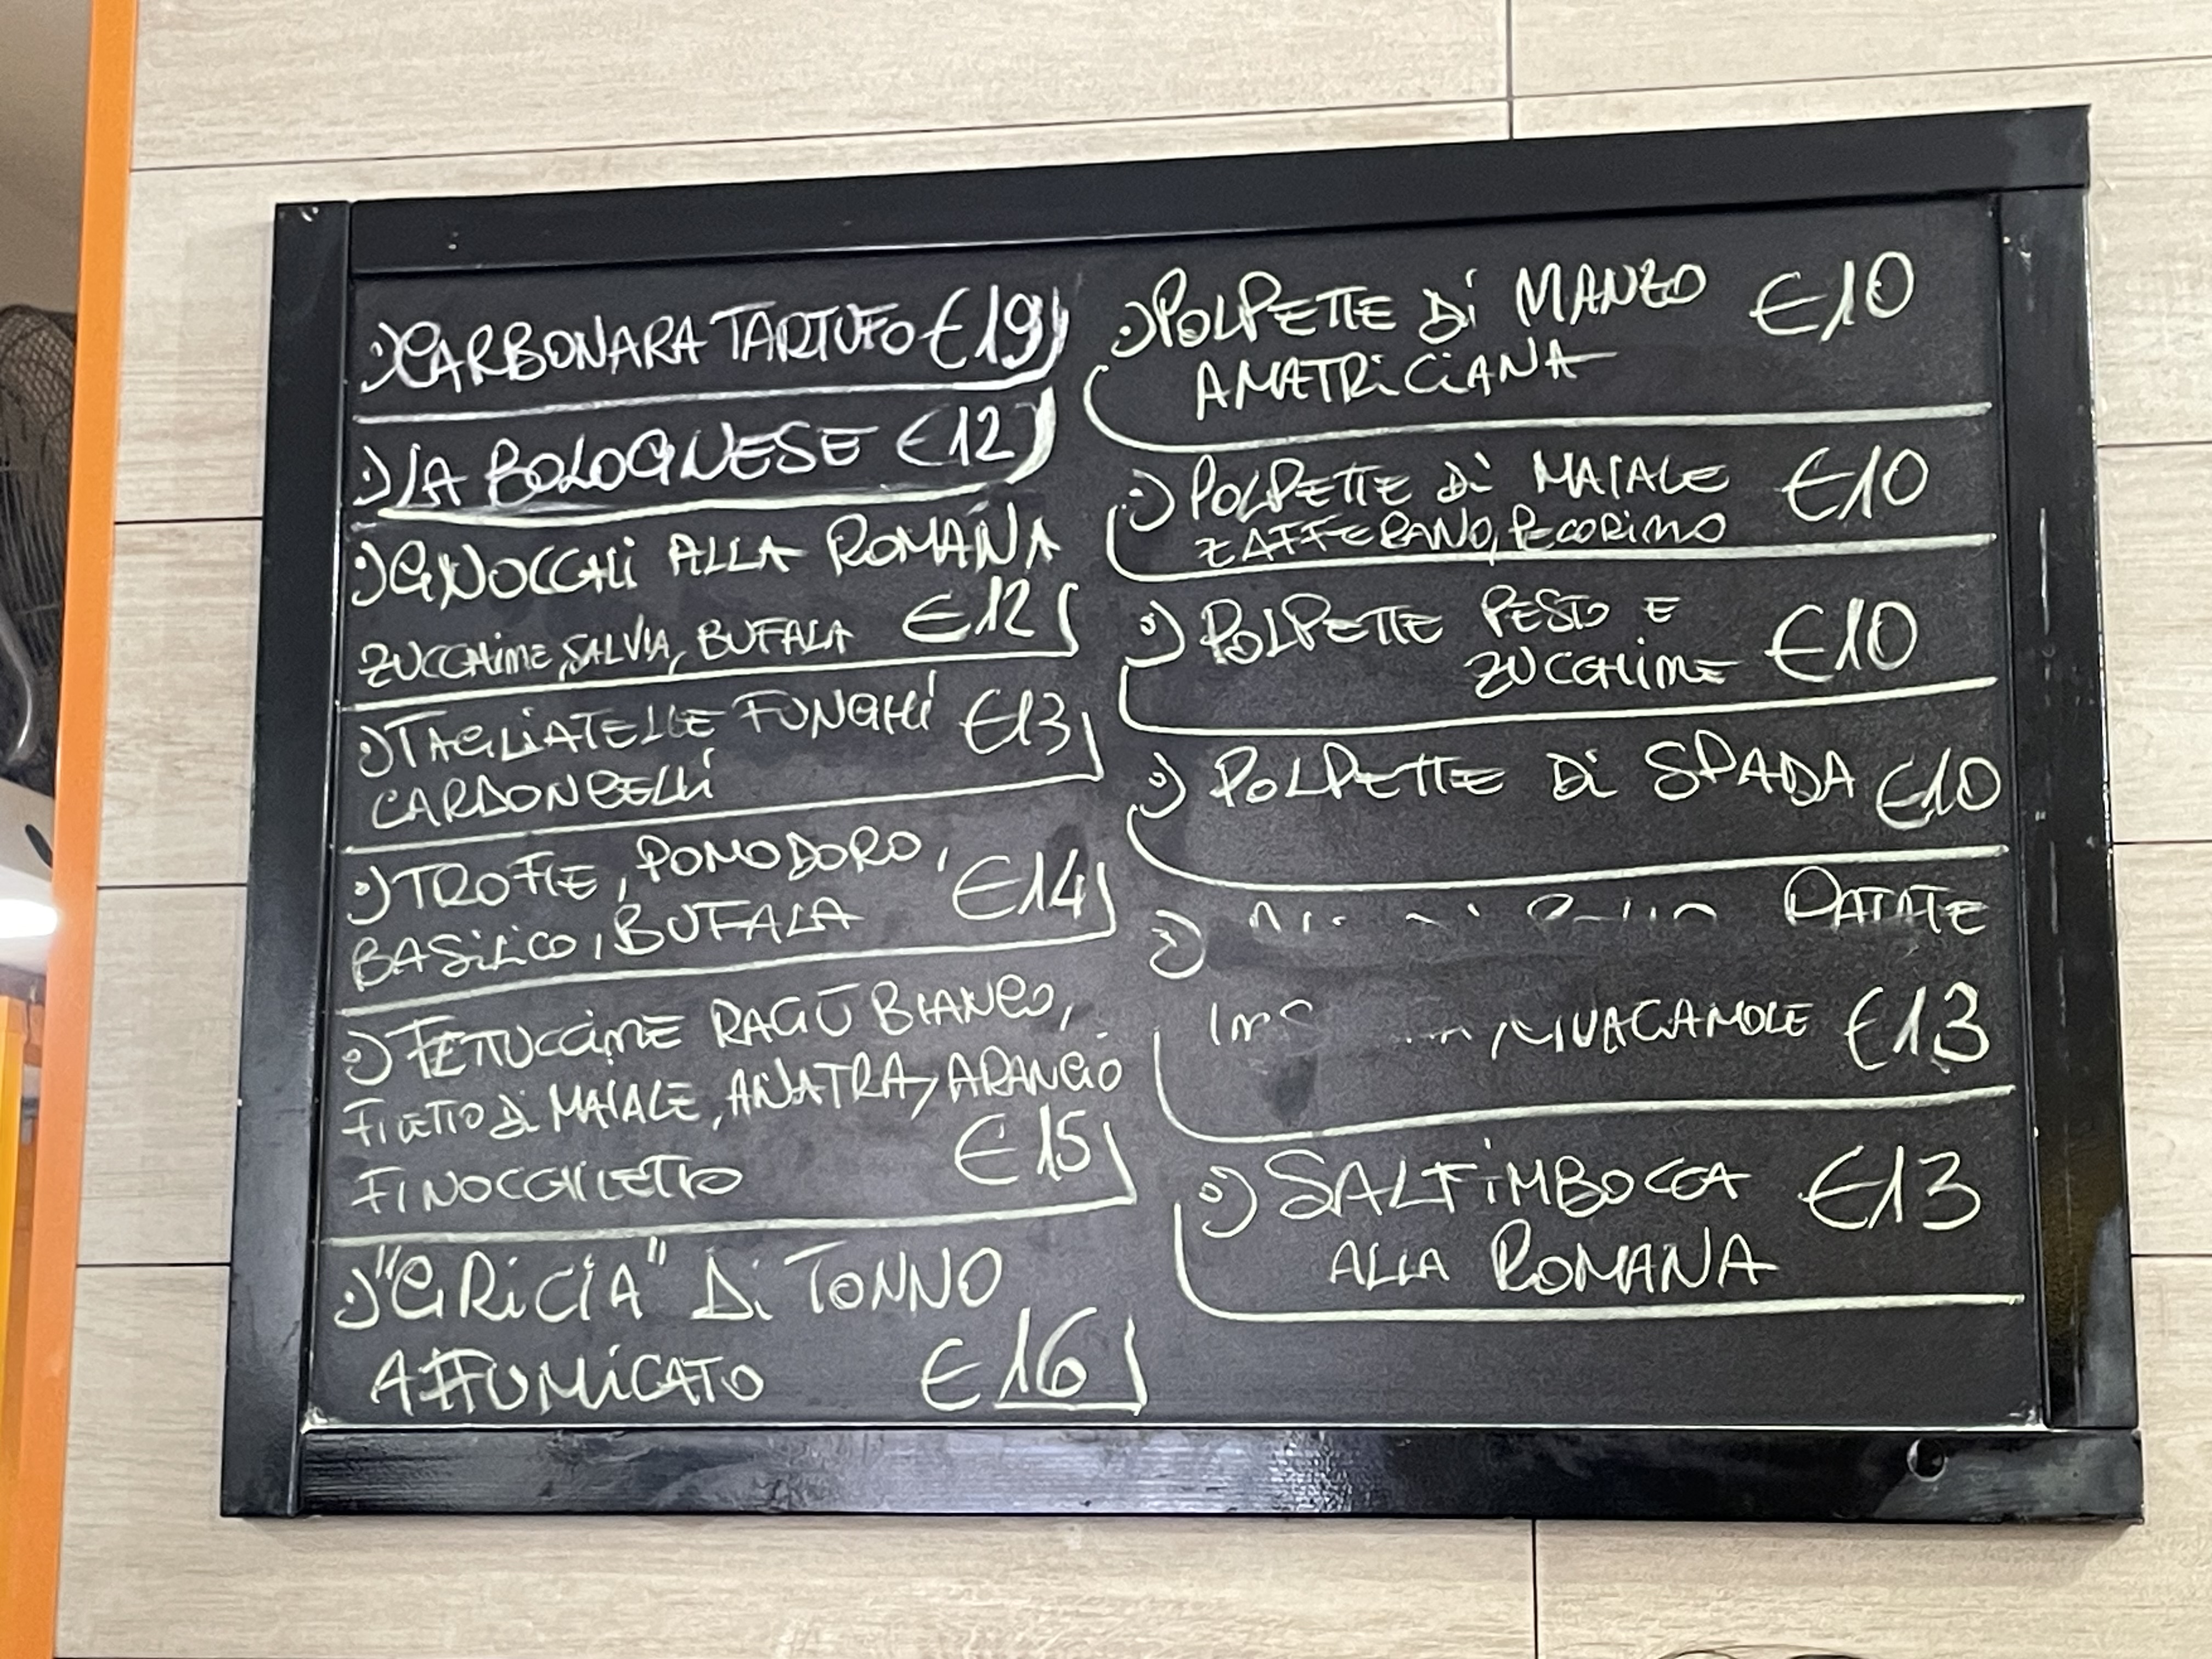 CARBONARA TARTUFO €19
LA BOLOGNESE €12
GNOCCHI ALLA ROMANA
ZUCCHINE, SALVIA, BUFALA €12
TAGLIATELLE FUNGHI €13
CARDONCELLI
TROFIE, POMODORO,
BASILICO, BUFALA €14
FETTUCCINE RAGÙ BIANCO,
FILETTO DI MAIALE, ANATRA, ARANCIO
FINOCCHIETTO €15
"GRICIA" DI TONNO
AFFUMICATO €16
POLPETTE DI MANZO €10
AMATRICIANA
POLPETTE DI MAIALE €10
ZAFFERANO, PECORINO
POLPETTE PESTO E
ZUCCHINE €10
POLPETTE DI SPADA €10
PATATE
GUACAMOLE €13
SALTIMBOCCA €13
ALLA ROMANA